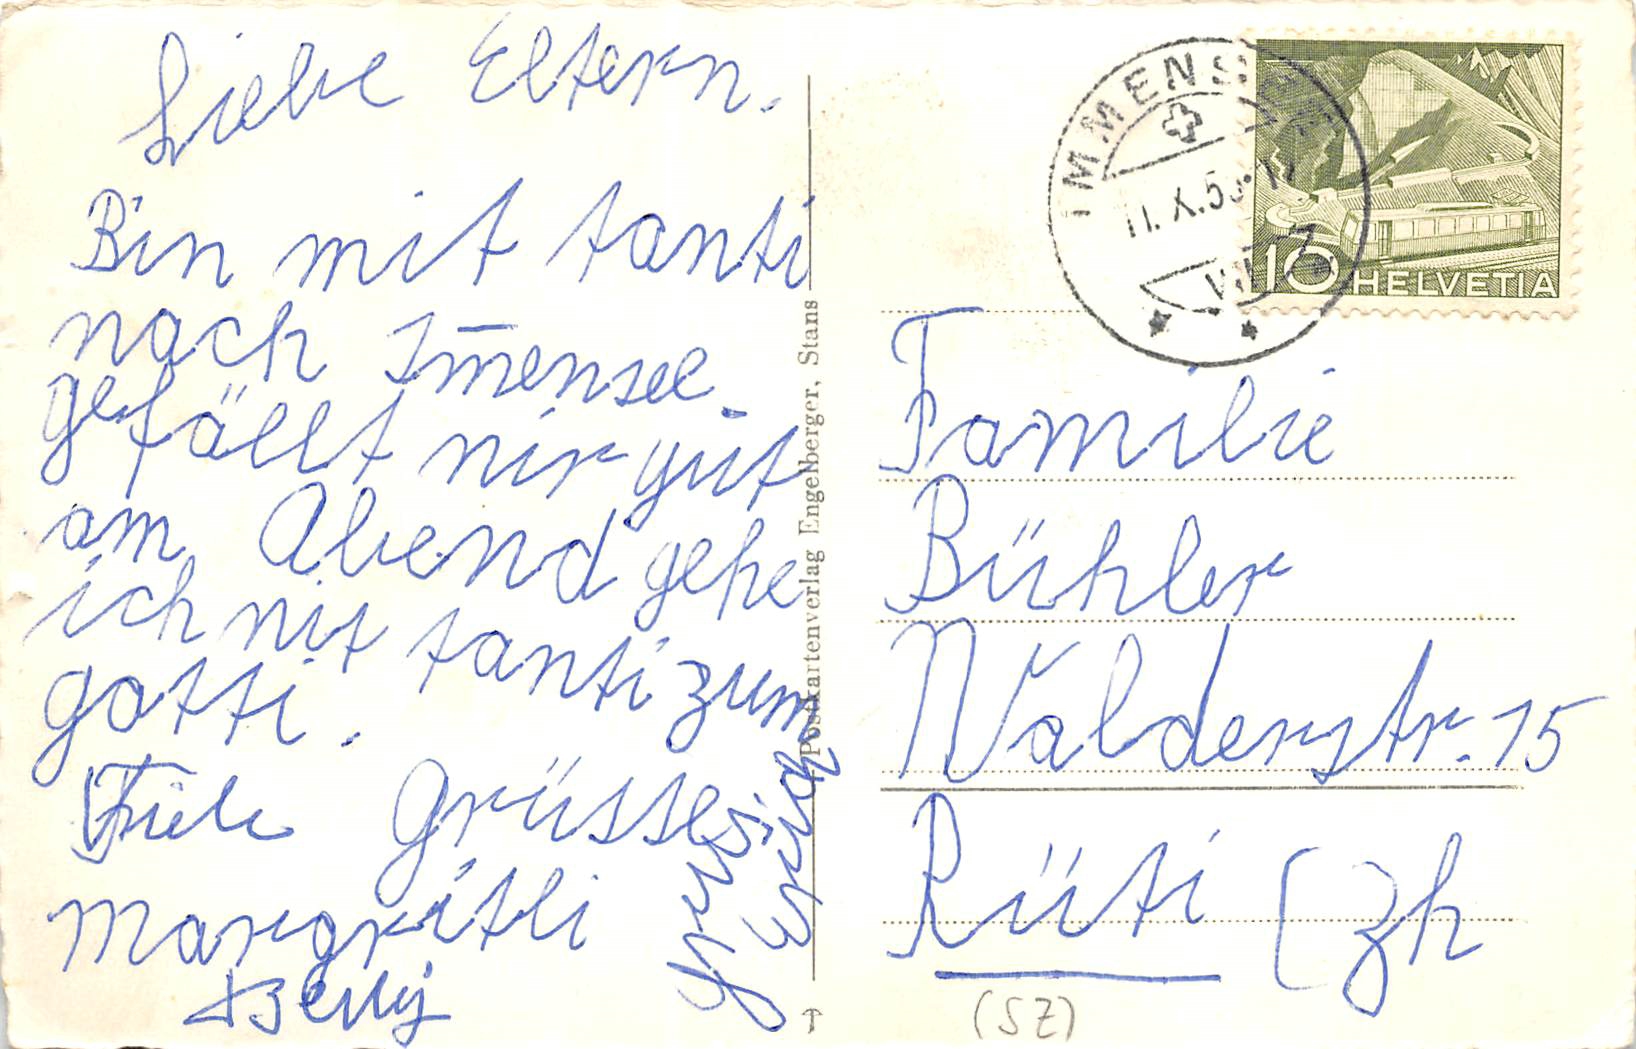 Liebe Eltern.
Bin mit tanti
nach Im̄ensee.
gefällt mir gut
am Abend gehe
ich mit tanti zum
gotti.
Viele Grüsse
Margritli
Gruss
Erich
Postkartenverlag Engelberger, Stans
IMMENSEE
11.X.5
10 HELVETIA
Familie
Bühler
Walderstr. 15
Rüti (Zh
(SZ)